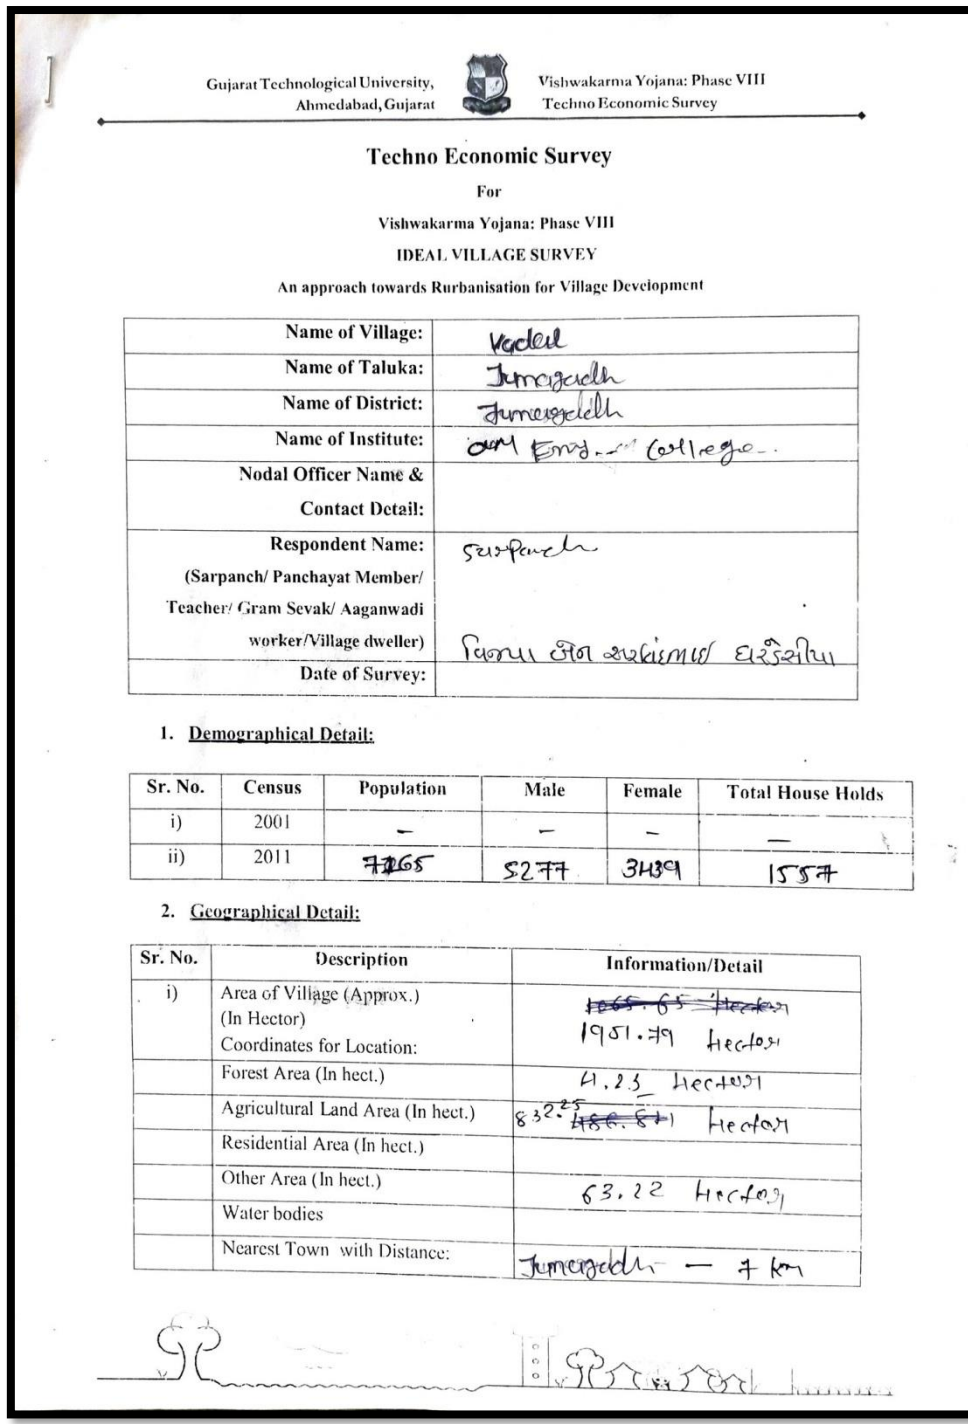 Gujarat Technological University,
Ahmedabad, Gujarat
Vishwakarma Yojana: Phase VIII
Techno Economic Survey
Techno Economic Survey
For
Vishwakarma Yojana: Phase VIII
IDEAL VILLAGE SURVEY
An approach towards Rurbanisation for Village Development
Name of Village:
Name of Taluka: Junagadh
Name of District: Junagadh
Name of Institute: Eng. College
Nodal Officer Name &
Contact Detail:
Respondent Name: Sarpanch
(Sarpanch/ Panchayat Member/
Teacher/ Gram Sevak/ Aaganwadi
worker/Village dweller)
Date of Survey:
1. Demographical Detail:
Sr. No. Census Population Male Female Total House Holds
i) 2001 – – – –
ii) 2011 5277 3439 1557
2. Geographical Detail:
Sr. No. Description Information/Detail
i) Area of Village (Approx.)
(In Hector) 1951.79 Hector
Coordinates for Location:
Forest Area (In hect.) Hector
Agricultural Land Area (In hect.) 832.25 Hector
Residential Area (In hect.)
Other Area (In hect.) 63.22 Hector
Water bodies
Nearest Town with Distance: Junagadh – 7 km